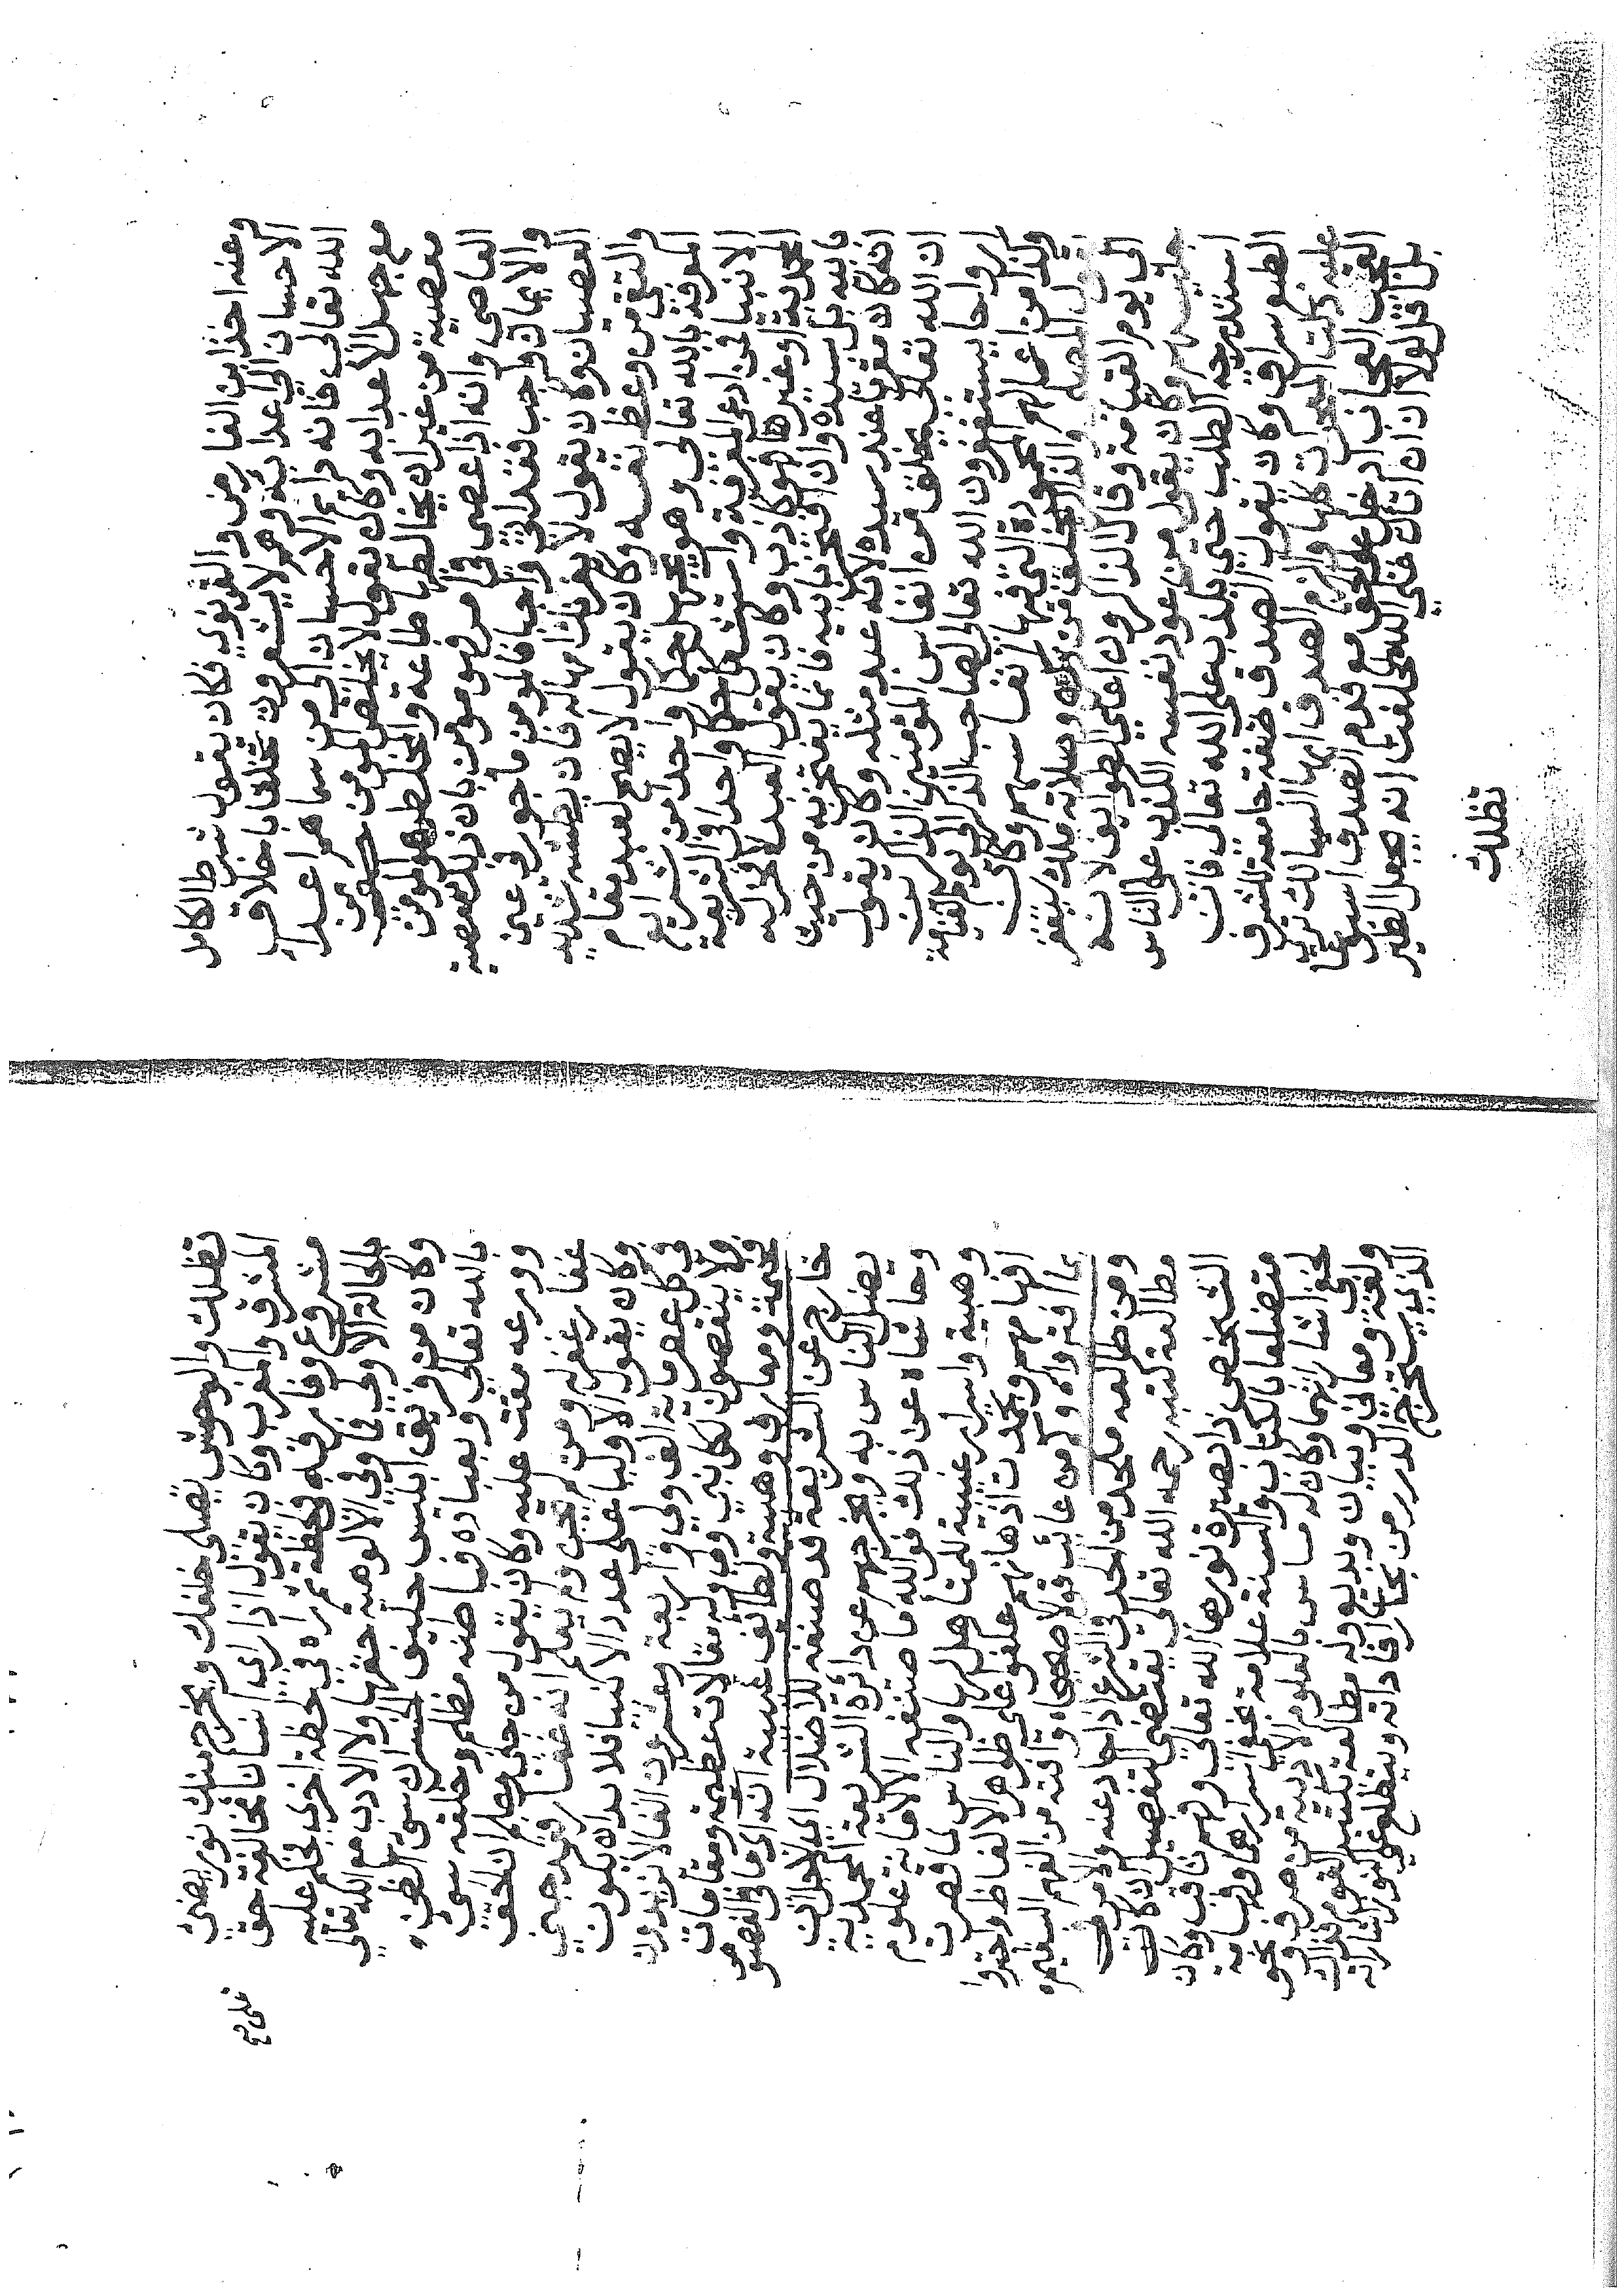 وعنه اخذ ابن الفارض والقونوي فكان يقول شرط الكامل
الاحسان الي اعدايه وهم لا يشعرون تخلقا باخلاق
الله تعالي فانه دايم الاحسان الي من سماهم اعداء
مع جهل الاعدا به وكان يقول لا يخلص لمومن
معصية من غير ان يخالطها طاعة والمخلط هو المومن
العاصي وانه اذا عصي في امر فهو مومن بان ذلك معصية
والايمان واجب فقد اتي واجبا فالمومن ماجور في عين
العصيان وكان يقول لا يغرنك امهاله فان بطشه شديد
والتقي من وعظ نفسه وكان يقول لا يصح لعبد مقام
المعرفة بالله تعالي وهو يجهل حكما واحدا من شرايع
الانبيا فمن ادعي المعرفة واستشكل حكما واحدا في الشريعة
المحمدية او غيرها فهو كاذب وكان يقول العبد لا فخر له
بابيه بل سيده وان افتخر بابيه فانما يفتخر به من حيث
انه كان مقربا عند سيده لانه عبد مثله وكان يقول
ان الله تعالي يخلق من انفاس المومنين الذاكرين
ارواحا يستغفرون الله تعالي لصاحب الذكر الي يوم القيامة
وكذا من اعمالهم المحمودة التي فيها انفاسهم وكان
يقول المصلي والذاكر يخلق من ذكره وصلاته ملك يستغفر
الي يوم القيامة وقال الذاكرون اعلي الطوايف لانه
جليسهم وكان يقول من عود نفسه الكذب علي الناس
استدرجه الطبع حتي يكذب علي الله تعالي فان
الطبع سراق وكان يقول الصدق صفة جامعة للشرف
عليه دلت المعجزات كلها والزم الصدق ايها السالك تري
العجب العجاب ادخل علي الحق مع قدم الصدق اسبوعا
بل اقل لولا ان اتاك خفي اللطف لخلفت انه يجعل الطير
تظلك
تظلك والوحوش تصلي خلفك ويخرج منك نور يضيء
المشرق والمغرب وكان يقول اذا راي انسانا مخالفة حق
مشروع وفارقه في لحظة ثم راه في لحظة اخري يحكم عليه
بالحالة الاولي فما وفي الالوهية حقها ولا الادب مع الله تعالي
وكان من فريق ابليس حليف الخسران سيئ الظن
بالله تعالي وبعباده فباطنه مظلم وخلقه سيئ
وورعه مقت عليه وكان يقول من حين يعلم ان الحق
غفار غفر له ومن لم يتب ولم يعلم انه غفار فقد جهل
وكان يقول الاوليا علي عدد الانبيا فلا بد ان يكون
في كل عصر ماية الف ولي واربعة وعشرون الفا لا يزيدون
ولا ينقصون لكل نبي ولي وله مقالات عظيمة ومقامات
فخيمة ومعارف وهبية ولطايف غريبة اذ راي ما في الفصوص
خارج عن الشريعة قد صنفه للاضلال اي لاجل ان
يضل الناس به ويخرجهم عن دائرة الشريعة المحمدية
وحاشاه عن ذلك فوالله ما صنفه الا لامانة علوم
وهبية واسرار غيبية للمتاهل لها والناس لما قصرت
افهامهم وجمدت اذهانهم علقوا علي ظواهر الالفاظ واخذوا
بما فتواه وكم من عايب قولا صحيحا وافته من الفهم السقيم
ومن طالعه ملحد من الحد في الشرع اذا حاد عنه والامر في
مطالعة كتبه رحمه الله تعالي يقتضي التفصيل ان كان
الشخص ذا بصيرة نورها الله تعالي وفهم ثاقب وكان
متضلعا بالكتاب والسنة علامة بخفي اسرارها وفهامة
لخفي اشارتهما وكان له مساس بالعلوم الادبية من صرف ونحو
ولغة ومعاني وبيان وبديع وله مطالعة بكتب القوم فذلك
الذي يستخرج الدرر من بحار افاداته ويتطلع علي نور اشاراته